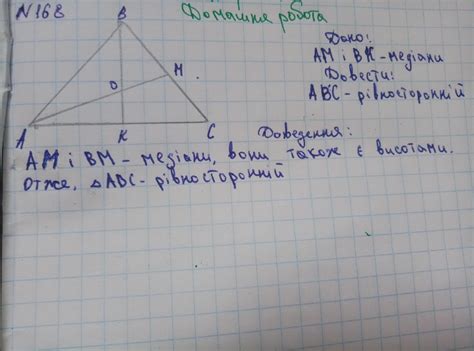 N168
Домашня робота
B
O
M
A
K
C
Дано:
AM і BK - медіани
Довести:
ABC - рівносторонній
Доведення:
AM і BM - медіани, вони також є висотами.
Отже, △ABC - рівносторонній